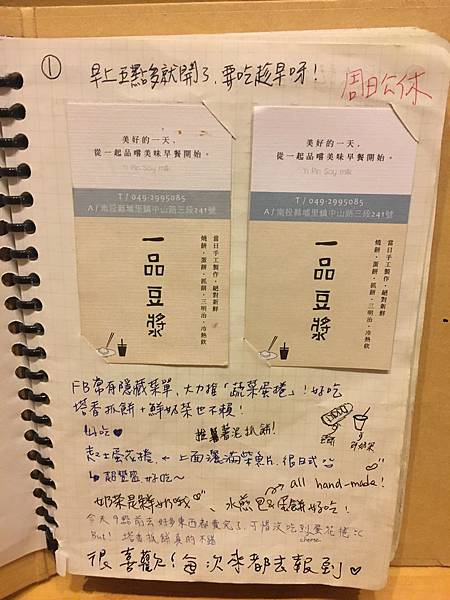 ①
早上五點多就開了,要吃趁早呀!
周日公休
美好的一天,
從一起品嚐美味早餐開始。
Yi Pin Soy milk
T / 049-2995085
A / 南投縣埔里鎮中山路三段241號
當日手工製作,絕對新鮮
燒餅、蛋餅、抓餅、三明治、冷熱飲
一品豆漿
美好的一天,
從一起品嚐美味早餐開始。
Yi Pin Soy milk
T / 049-2995085
A / 南投縣埔里鎮中山路三段241號
當日手工製作,絕對新鮮
燒餅、蛋餅、抓餅、三明治、冷熱飲
一品豆漿
FB常有隱藏菜單,大力推「蔬菜蛋捲」!好吃
塔香抓餅+鮮奶茶也不賴!
好吃♥ 推薯泥抓餅!
起士蛋花捲,← 上面灑滿柴魚片,很日式
↳超豐盛,好吃~
all hand-made!
奶茶是鮮奶哦,水煎包&蛋餅好吃!
今天9點前去好多東西都賣完了,可惜沒吃到蛋花捲:C
cheese
But! 塔香抓餅真的不錯
很喜歡!每次來都去報到♡